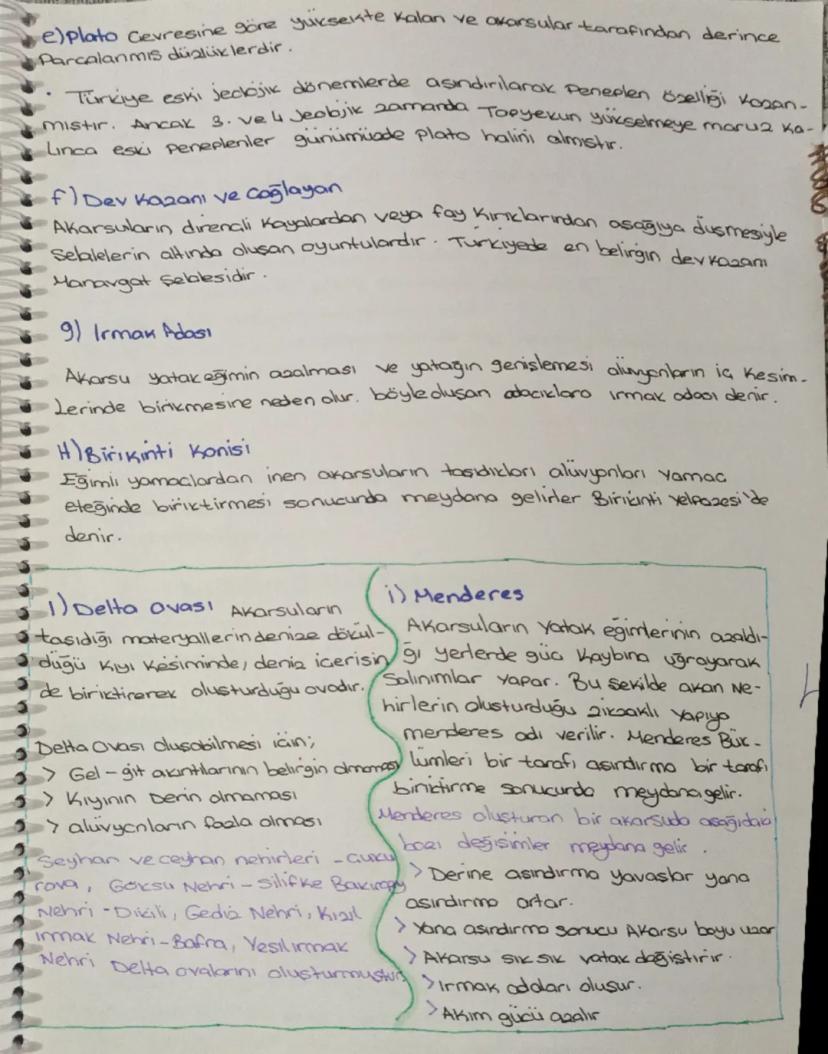 e) Plato Cevresine göre yüksekte kalan ve akarsular tarafından derince
Parcalanmıs düzlüklerdir.
· Türkiye eski jeolojik dönemlerde asındırılarak Peneplen özelliği kazan-
mıstır. Ancak 3. ve 4 Jeolojik zamanda Topyekun yükselmeye maruz ka-
Lınca eski Peneplenler günümüzde plato halini almıstır.
f) Dev Kazanı ve Cağlayan
Akarsuların dirençli kayalardan veya fay kırıklarından asağıya düsmesiyle
Selalelerin altında olusan oyuntulardır. Türkiyede en belirgin devkazanı
Manavgat Selalesidir.
g) Irmak Adası
Akarsu yatak eğimin azalması ve yatağın genislemesi alüvyonların iç Kesim-
Lerinde birikmesine neden olur. böyle olusan adacıklara ırmak adası denir.
H) Birikinti Konisi
Eğimli yamaclardan inen akarsuların tasıdıkları alüvyonları yamac
eteğinde biriktirmesi sonucunda meydana gelirler Birikinti Yelpazesi'de
denir.
I) Delta Ovası Akarsuların
tasıdığı materyallerin denize dökül-
düğü Kıyı Kesiminde, deniz icerisin
de biriktirerek olusturduğu ovadır.
Delta Ovası olusabilmesi icin;
> Gel-git akıntılarının belirgin olmaması
> Kıyının Derin olmaması
> alüvyonların fazla olması
Seyhan ve ceyhan nehirleri - Cuku
rova, Göksu Nehri - Silifke Bakırçay
Nehri - Dikili, Gediz Nehri, Kızıl
ırmak Nehri - Bafra, Yesilırmak
Nehri Delta ovalarını olusturmustur
i) Menderes
Akarsuların Yatak eğimlerinin azaldı-
ğı yerlerde güç Kaybına uğrayarak
Salınımlar yapar. Bu sekilde akan Ne-
hirlerin olusturduğu zikzaklı yapıya
menderes adı verilir. Menderes Bük-
lümleri bir tarafı asındırma bir tarafı
biriktirme sonucunda meydana gelir.
Menderes olusturan bir akarsuda asağıdaki
bazı değisimler meydana gelir.
> Derine asındırma yavaslar yana
asındırma artar.
> Yana asındırma sonucu Akarsu boyu uzar
> Akarsu sık sık yatak değistirir.
> Irmak adaları olusur.
> Akım gücü azalır